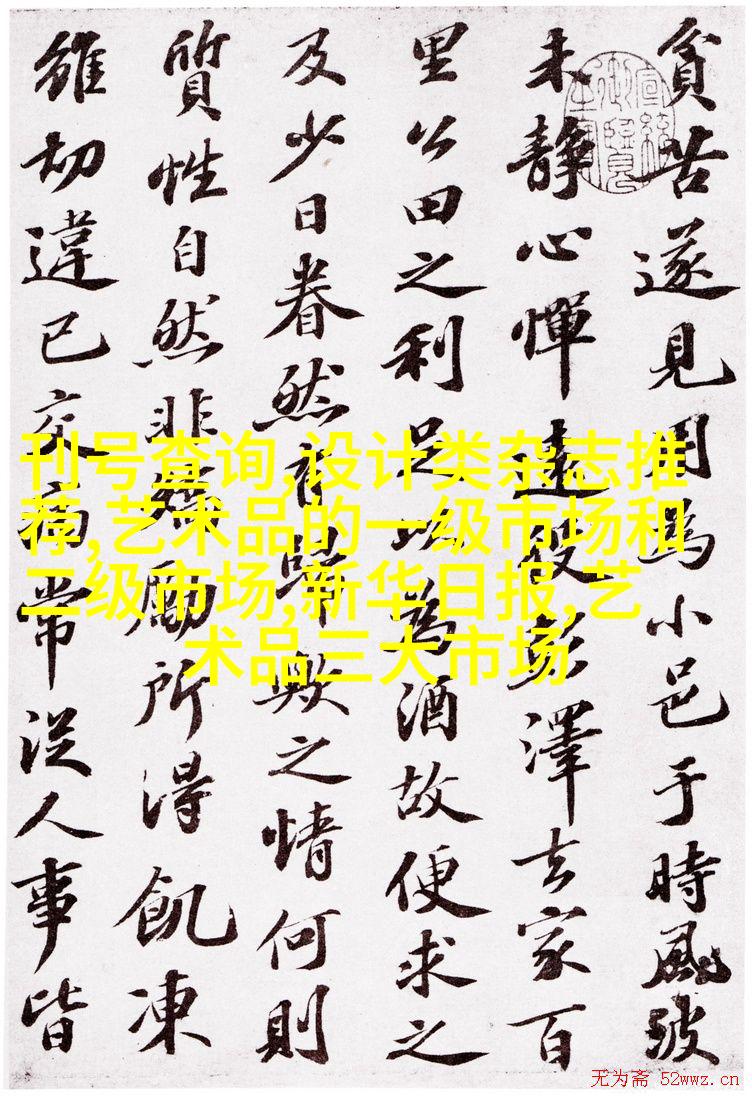 貧苦遂見用為小邑于時風波
未靜心憚遠役彭澤去家百
里公田之利足以為酒故便求之
及少日眷然有歸歟之情何則
質性自然非矯勵所得飢凍
雖切違已交病常從人事皆
刊号查询,设计类杂志推
荐,艺术品的一级市场和
二级市场,新华日报,艺
术品三大市场
无为斋 52wwz.cn